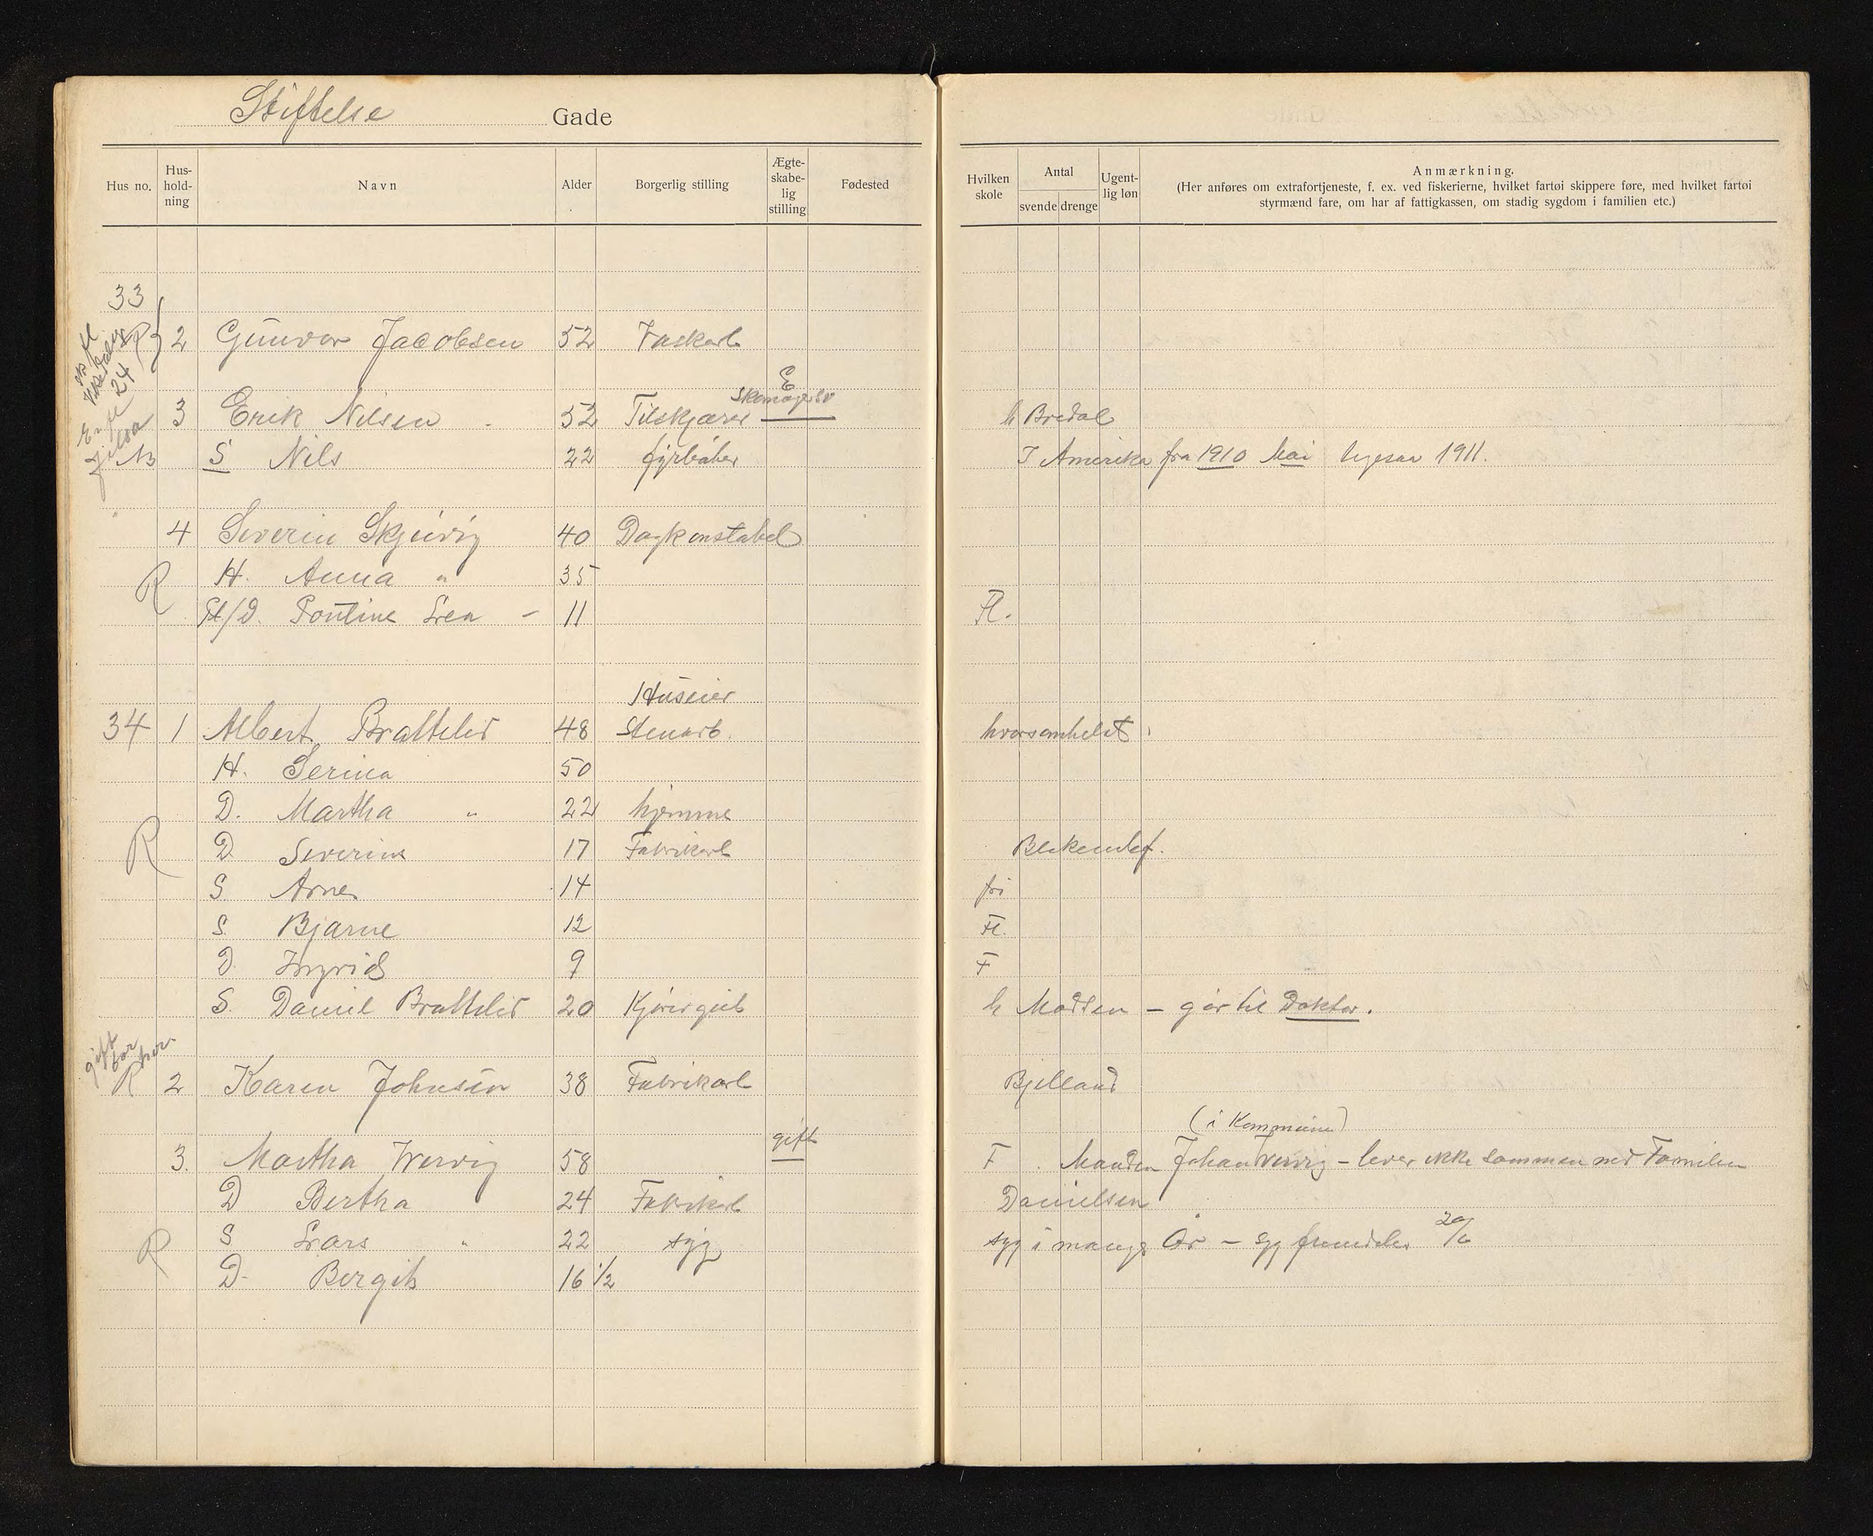 Stiftelse Gade
Hus no. Hus-hold-ning Navn Alder Borgerlig stilling Ægte-skabe-lig stilling Fødested Hvilken skole Antal svende drenge Ugent-lig løn Anmærkning.
(Her anføres om extrafortjeneste, f. ex. ved fiskerierne, hvilket fartøi skippere føre, med hvilket fartøi
styrmænd fare, om har af fattigkassen, om stadig sygdom i familien etc.)
33
2 Gunvor Jacobsen 52 Vaskerk
24
E
Skomagersv
3 Erik Nilsen 52 Tilskjærer h Bredal
S Nils 22 fyrbøter I Amerika fra 1910 Mai ligesaa 1911.
4 Severin Skjervig 40 Dagkonstabel
H. Anna " 35
R
Pl/D. Pontine Lea - 11 Fl.
Huseier
34 1 Albert Brattelid 48 Stenarb. hvorsomhelst
H. Serina 50
D. Martha " 22 hjemme
R D Severine 17 Fabrikarb
S. Arne 14 fri
S. Bjarne 12 Fl.
D. Ingrid 9 F
S. Daniel Brattelid 20 Kjøregut h Madsen - går til Doktor.
gift
R 2 Karen Johnsen 38 Fabrikarb Bjelland
(i Kommune)
gift
3. Martha 58 F. Manden Johan - lever ikke sammen med Familien
D Bertha 24 Fabrikarb Danielsen
R S Lars " 22 syg syg i mange År - syg fremdeles 20/6
D. Bergit 16 1/2